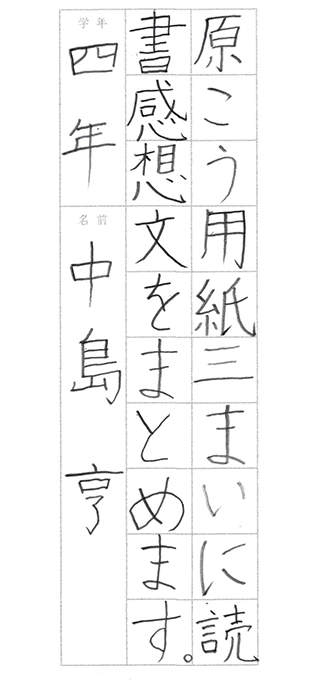 原こう用紙三まいに読
書感想文をまとめます。
学年
四年
名前
中島亨